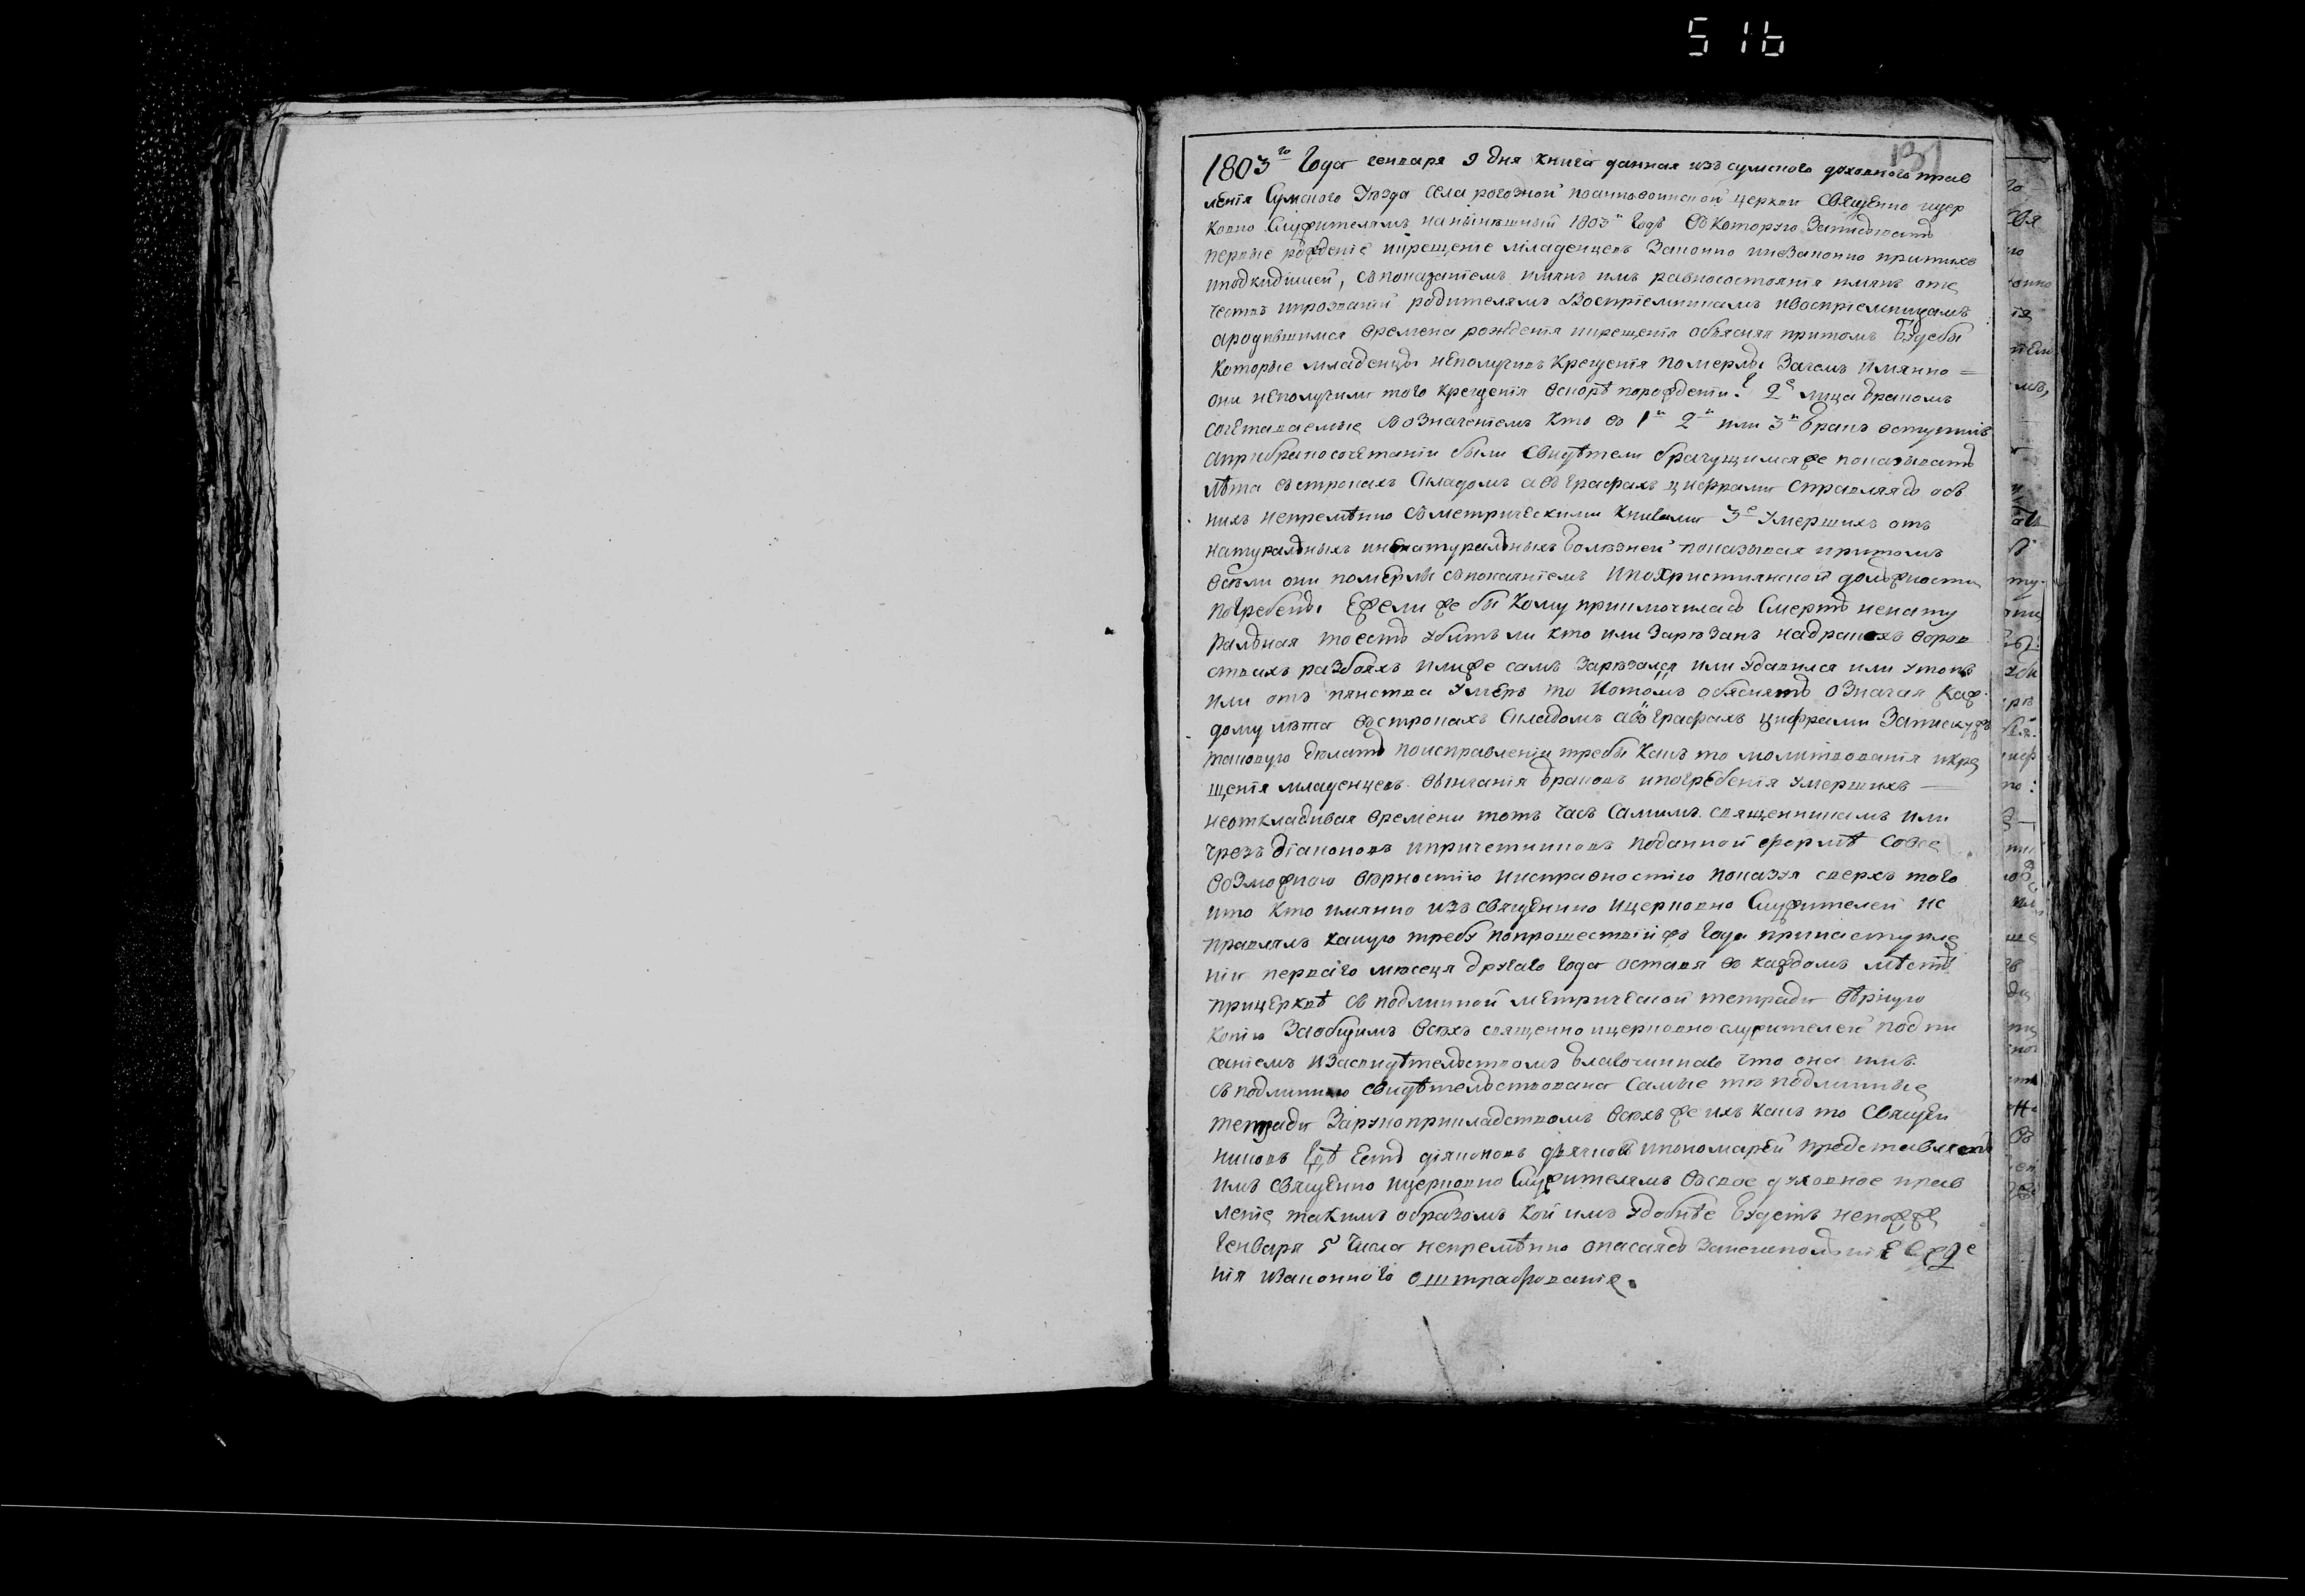 516
137
1803го Года генваря 9 дня книга данная изъ сумского духовного прав
ленія Сумского Уѣзда села рогозной іоанновоинской церкви Священно ицер
ковно Служителямъ нанынѣшный 1803й Годъ въ которую Записовать
первые рожденіе икрещеніе младенцевъ Законно инезаконно прижитыхъ
иподкидишей, съпоказаніемъ имянъ имъ равносостоянія имянъ оте
чествъ ипрозваній родителямъ Воспріемникамъ ивоспріемницамъ
ародившимся времена рожденія икрещенія объясняя притомъ Будебы
которые младенцы неполучивъ крещенія померлы Зачемъ имянно =
они неполучили того крещенія вскорѣ порождени. 2е лица бракомъ
сочетаваемые съозначеніемъ кто въ 1й 2й или 3й бракъ вступилъ
априбракосочетаніи были свидѣтели брачущимсяже показывать
лѣта въстрокахъ Складомъ авъ Графахъ цифрами справляясь объ
нихъ непремѣнно съметрическими книгами 3е Умершихъ отъ
натуральныхъ иненатуральныхъ болѣзней показывая притомъ
всѣли они померлы съпокаяніемъ ипохристиянской должности
погребены Ежели же бы кому приключилась Смерть ненату
ральная тоесть убитъ ли кто или Зарѣзанъ надракахъ воров
ствахъ разбояхъ илиже самъ Зарѣзался или удавился или утопъ
или отъ пянства Умеръ то иотомъ обяснять означая каж
дому лѣта въстрокахъ Складомъ авъ Графахъ цифрами Запискужъ
таковую делать поисправленіи требы какъ то молитвованія икре
щенія младенцевъ. вѣнчанія браковъ ипогребенія умершихъ —
неоткладивая времени тотъ часъ Самимъ священникамъ или
чрезъ діаконовъ ипричетниковъ поданной формѣ совсе
возможною вѣрностію иисправностію показуя сверхъ того
что кто имянно изъ священно ицерковно Служителей ис
правлялъ какую требу попрошествіи жъ Года принаступле
ніи перваго месеця другаго Года оставя въ каждомъ мѣстѣ
прицерквѣ съ подлинной метрической тетради вѣрную
копію Заобщимъ Всѣхъ священно ицерковно служителей подпи
саніемъ изасвидѣтельствомъ благочиннаго что она имъ
съподлинною свидѣтельствована Самые тѣ подлинные
тетради Зарукоприкладствомъ всѣхъ же ихъ какъ то Священ
никовъ Гдѣ Есть діяконовъ дьячковъ ипономарей представлять
имъ священно ицерковно Служителямъ въсвое духовное прав
леніе такимъ образомъ кой имъ удобнѣе будетъ непозже
Генваря 5 числа непремѣнно опасаясь
нія изаконнаго оштрафованія.